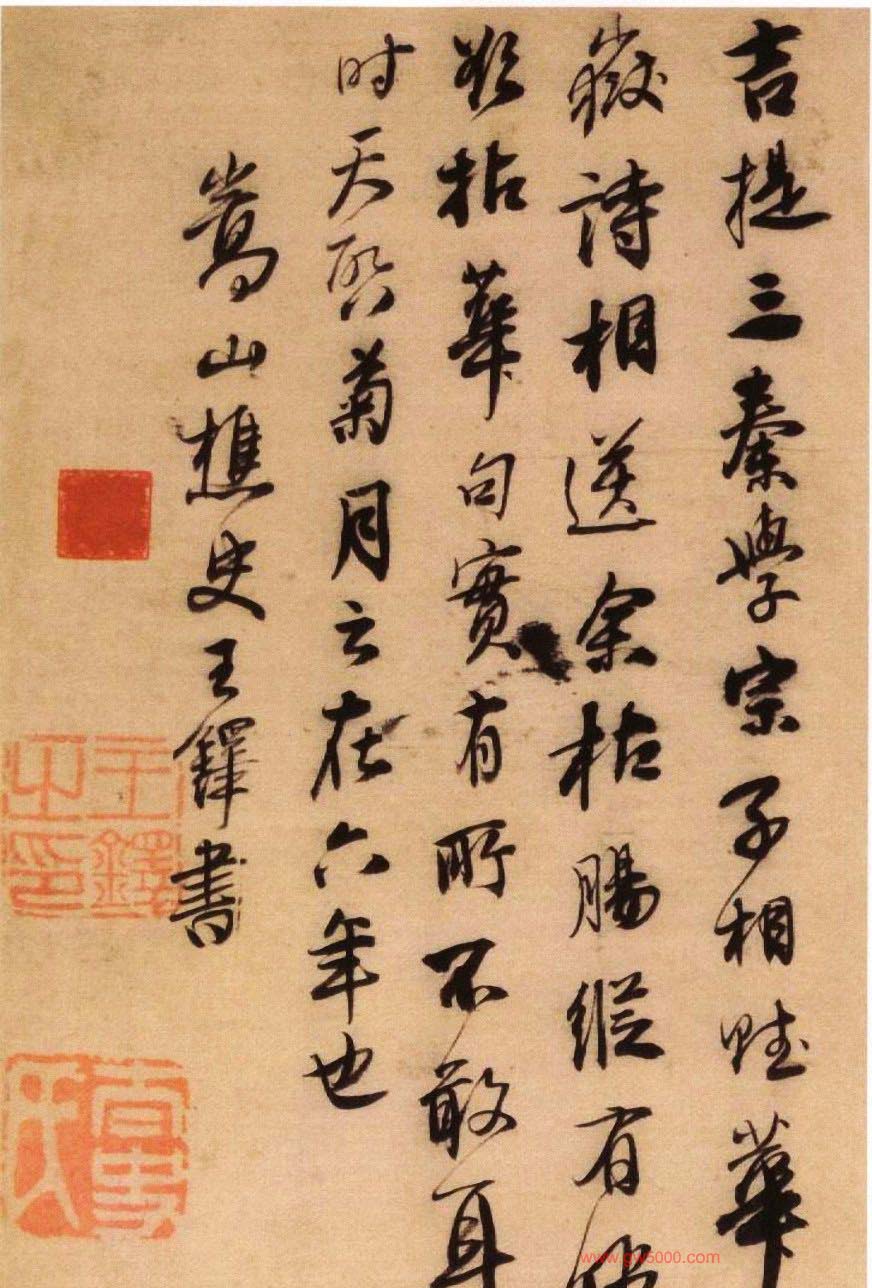 吉提三秦學宗子相賦華
嶽詩相送余枯腸縱有
欲拈華句實有所不敢耳
时天啓菊月云在六年也
嵩山樵史王鐸書
王鐸之印
www.gw5000.com